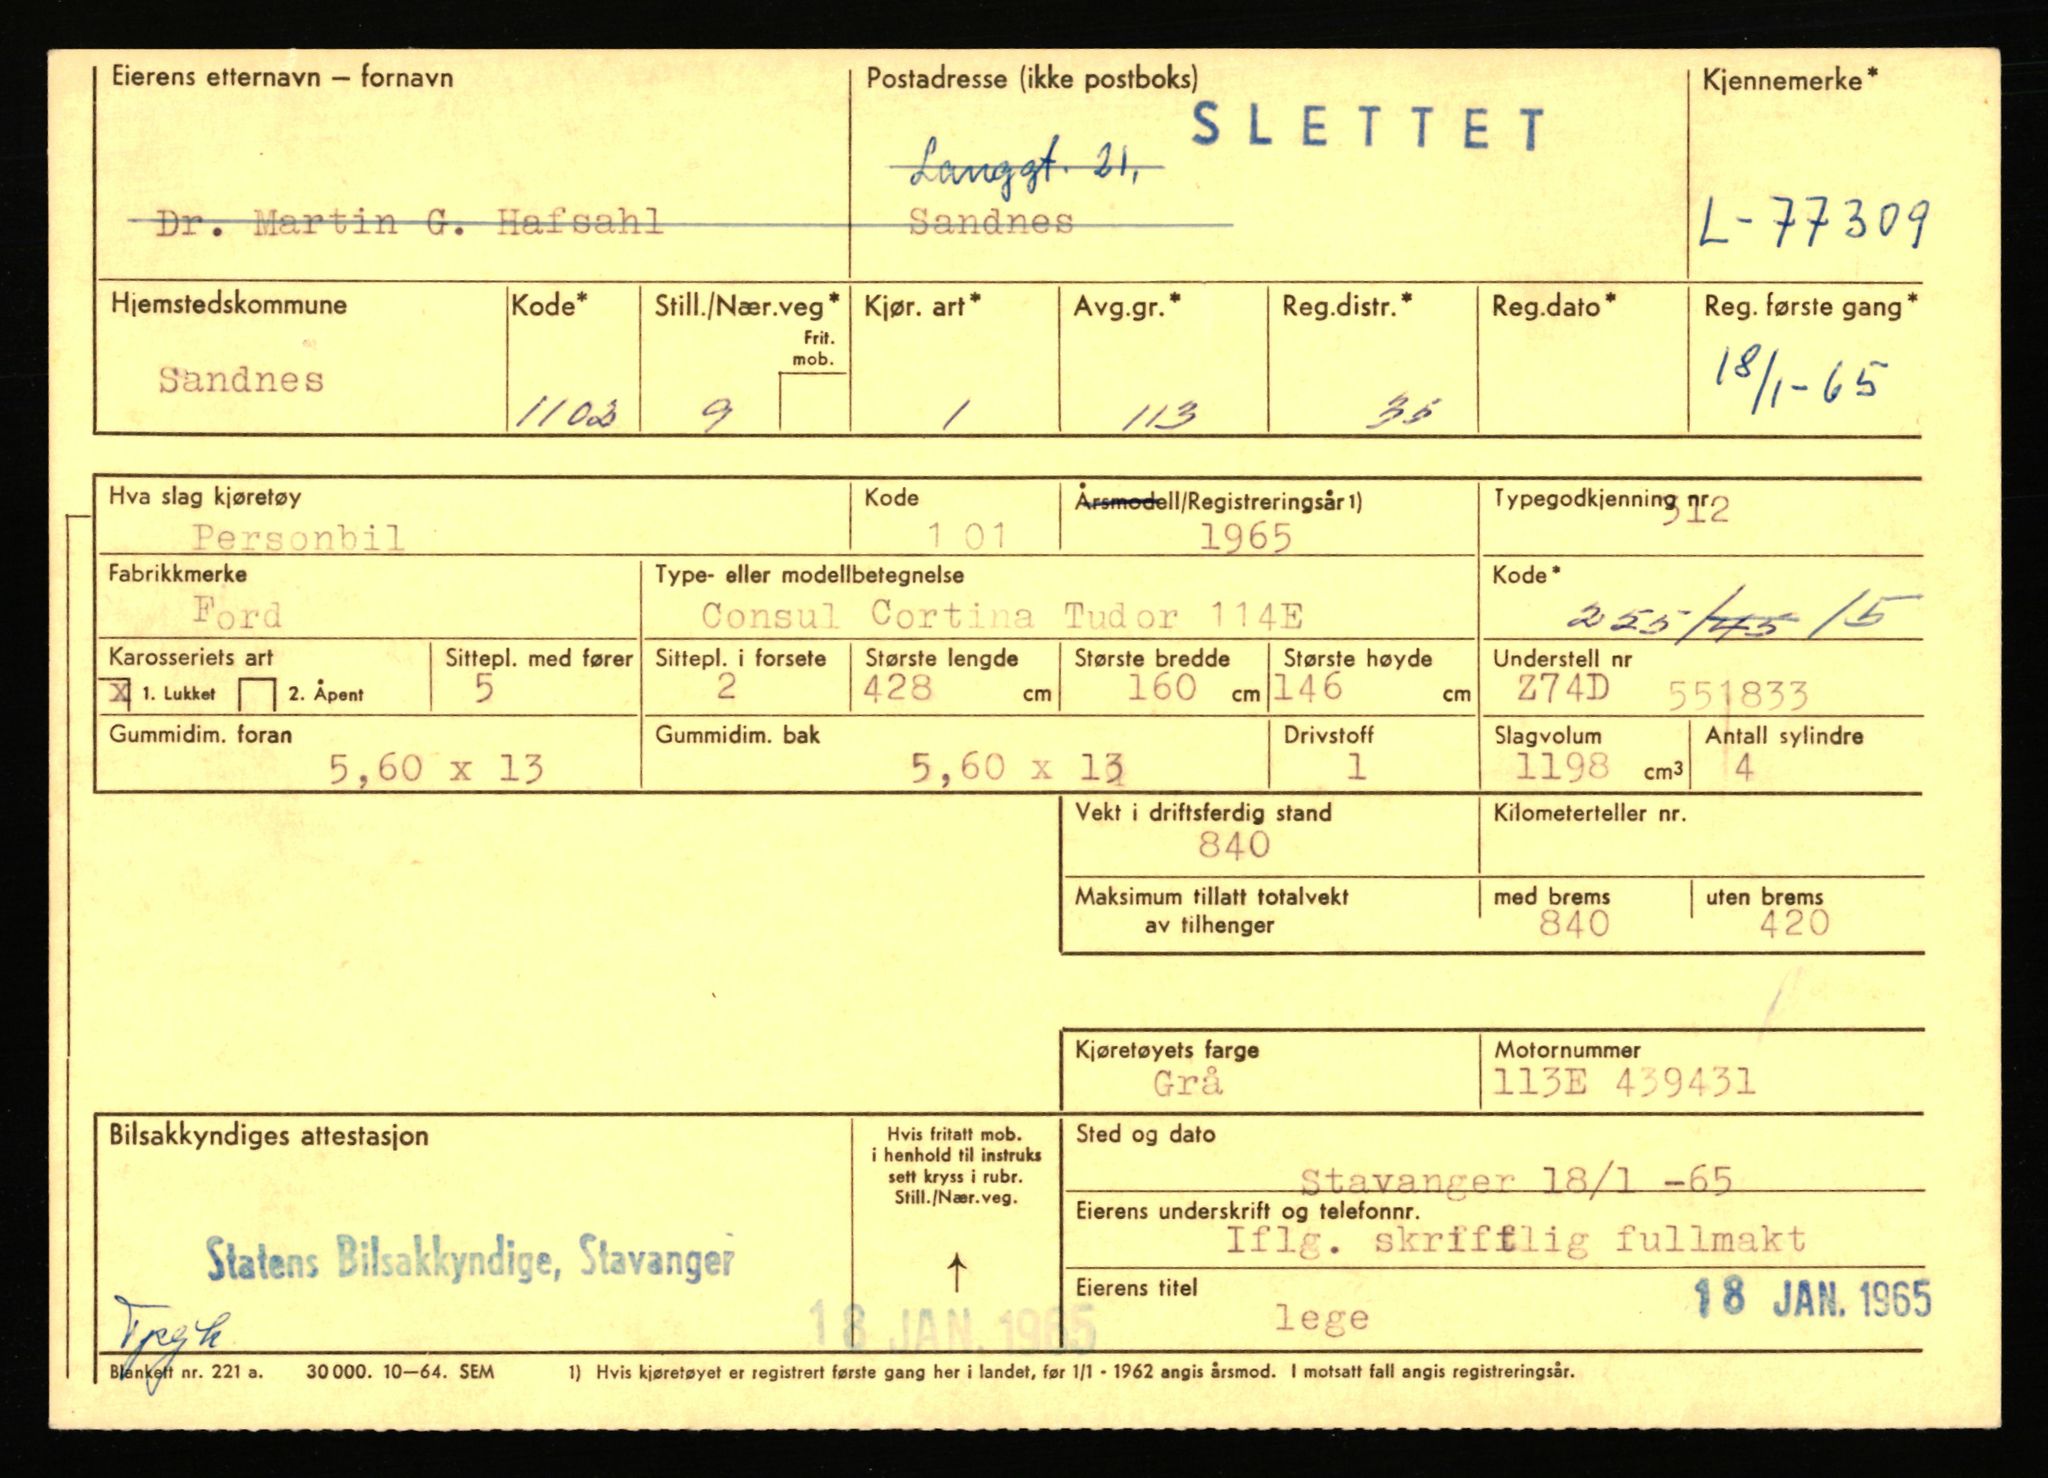 Eierens etternavn – fornavn
Postadresse (ikke postboks)
Kjennemerke*
SLETTET
Langgt. 21,
Dr. Martin G. Hafsahl
Sandnes
L-77309
Hjemstedskommune
Kode*
Still./Nær.veg*
Frit. mob.
Kjør. art*
Avg.gr.*
Reg.distr.*
Reg.dato*
Reg. første gang*
Sandnes
1102
9
1
113
35
18/1-65
Hva slag kjøretøy
Kode
Årsmodell/Registreringsår 1)
Typegodkjenning nr.
Personbil
1 01
1965
312
Fabrikkmerke
Type- eller modellbetegnelse
Kode*
Ford
Consul Cortina Tudor 114E
255/45 15
Karosseriets art
Sittepl. med fører
Sittepl. i forsete
Største lengde
Største bredde
Største høyde
Understell nr
x 1. Lukket 2. Åpent
5
2
428 cm
160 cm
146 cm
Z74D 551833
Gummidim. foran
Gummidim. bak
Drivstoff
Slagvolum
Antall sylindre
5,60 x 13
5,60 x 13
1
1198 cm3
4
Vekt i driftsferdig stand
Kilometerteller nr.
840
Maksimum tillatt totalvekt
av tilhenger
med brems
uten brems
840
420
Kjøretøyets farge
Motornummer
Grå
113E 439431
Bilsakkyndiges attestasjon
Hvis fritatt mob.
i henhold til instruks
sett kryss i rubr.
Still./Nær.veg.
Sted og dato
Stavanger 18/1 -65
Eierens underskrift og telefonnr.
Iflg. skriftlig fullmakt
Statens Bilsakkyndige, Stavanger
↑
Eierens titel
lege
18 JAN. 1965
18 JAN. 1965
Blankett nr. 221 a. 30 000. 10–64. SEM
1) Hvis kjøretøyet er registrert første gang her i landet, før 1/1 - 1962 angis årsmod. I motsatt fall angis registreringsår.